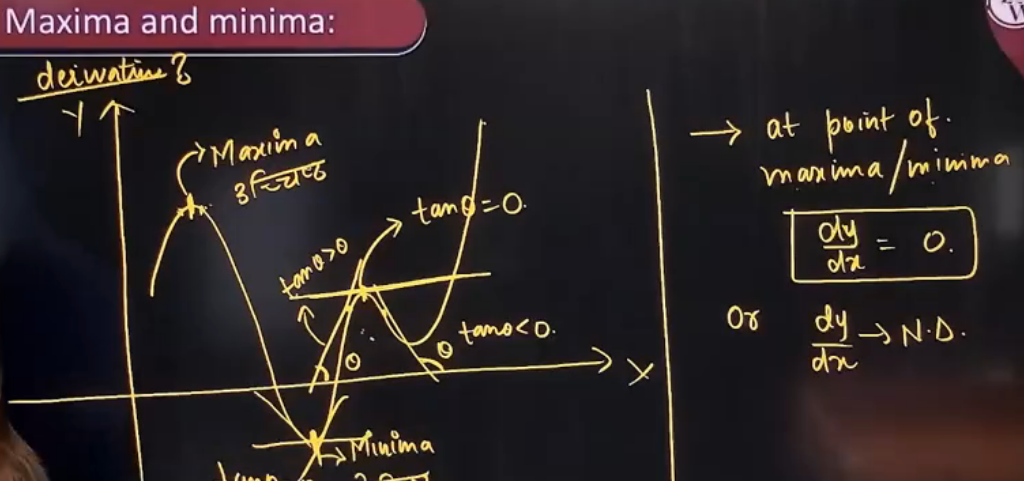 Maxima and minima:
derivative?
Y
Maxima
उच्चिष्ठ
tanθ=0.
tanθ>0
θ
θ
tanθ<0.
X
Minima
→ at point of.
maxima/minima
dy/dx = 0.
Or dy/dx → N.D.